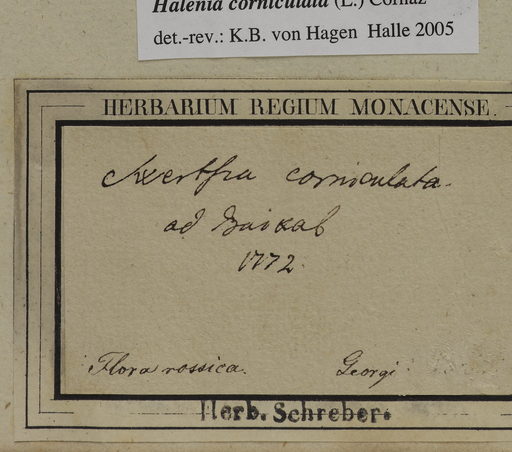 Halenia corniculata (L.) Cornaz
det.-rev.: K.B. von Hagen Halle 2005
HERBARIUM REGIUM MONACENSE.
Swertia corniculata.
ad Baikal
1772.
Flora rossica. Georgi
Herb. Schreber.